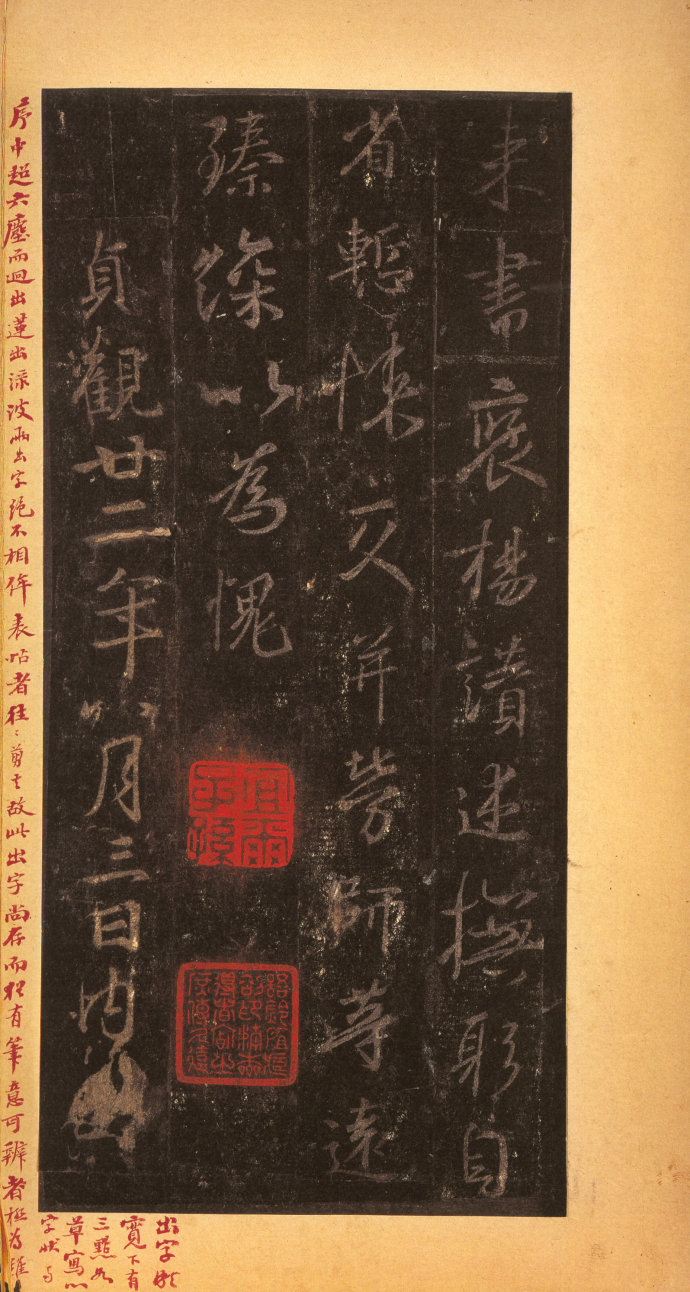 来書褒揚讃述撫躬自
省慙悚交并勞師等遠
臻深以為愧
貞觀廿二年八月三日内出
宜爾子孫
序中超六塵而迥出蓮出淥波兩出字絕不相侔表帖者往〻剪去故此出字尚存而猶有筆意可辨者極為難
出字形
寬下有
三點如
草寫心
字狀